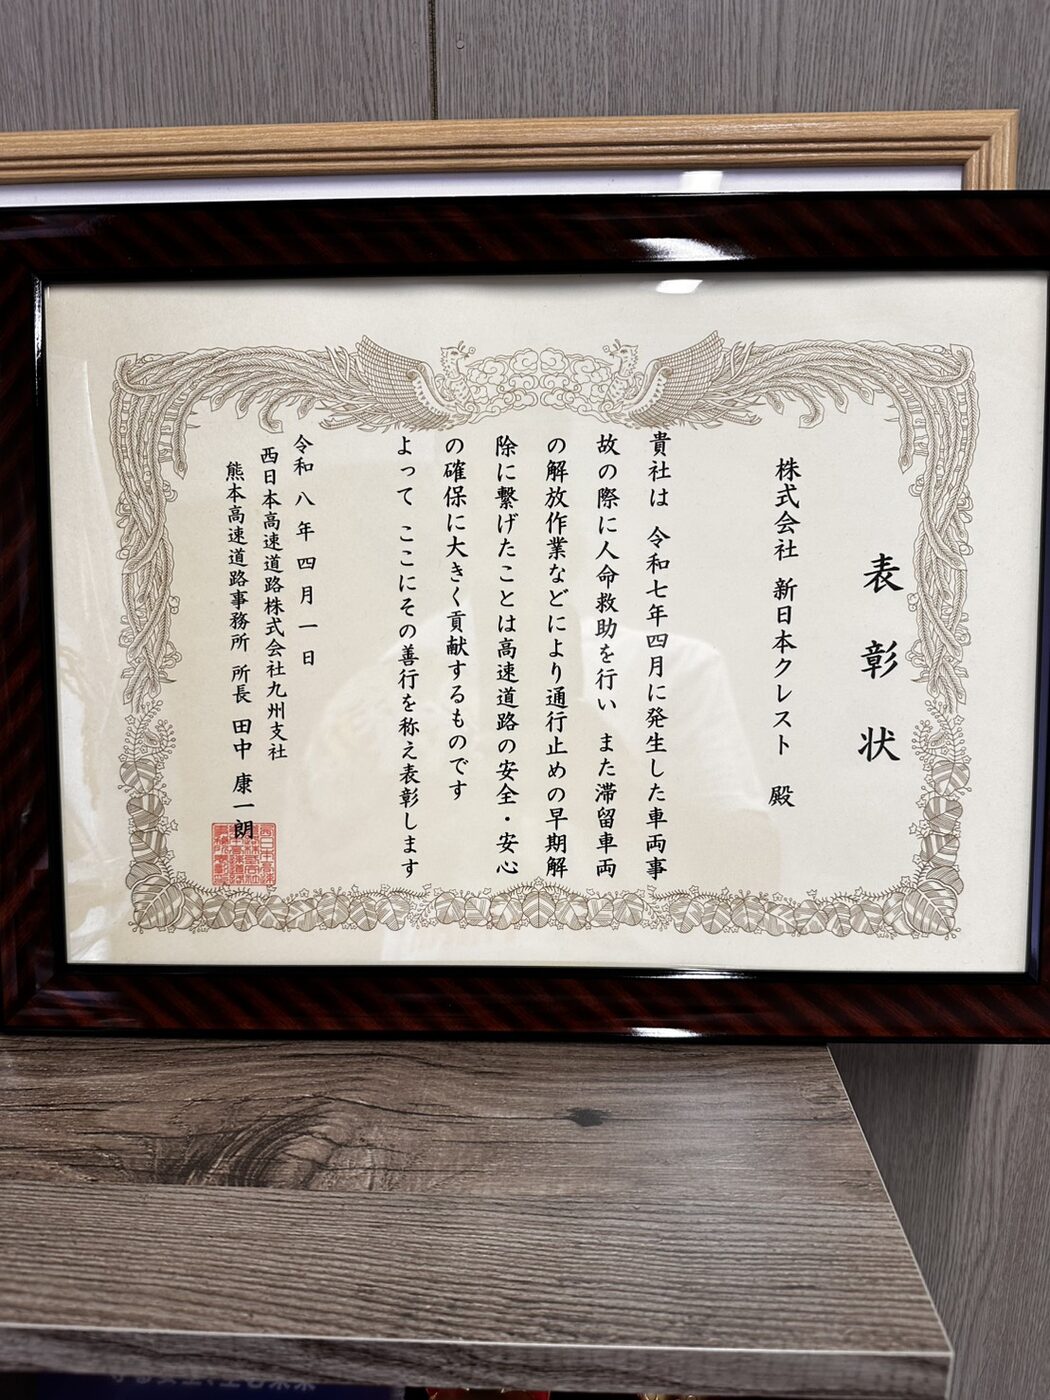 表彰状
株式会社 新日本クレスト 殿
貴社は 令和七年四月に発生した車両事
故の際に人命救助を行い また滞留車両
の解放作業などにより通行止めの早期解
除に繋げたことは高速道路の安全・安心
の確保に大きく貢献するものです
よって ここにその善行を称え表彰します
令和八年四月一日
西日本高速道路株式会社九州支社
熊本高速道路事務所 所長 田中 康一朗